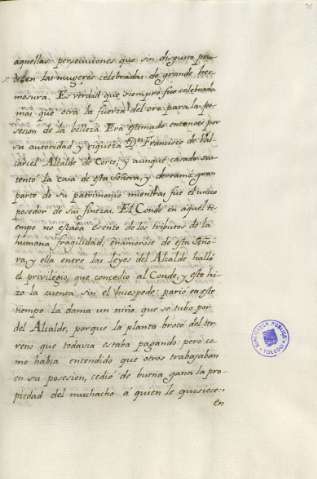 aquellas persecuciones que sin disgusto pru-
eban las mugeres celebradas de grande her-
mosura. Es verdad que siempre fue celebrada
mas que otra la fuerza del oro para la po-
sesion de la belleza. Era estimado entonces por
su autoridad y riqueza Dn. Francisco de Val-
carcel Alcalde de Corte, y aunque casado sus-
tentó la casa de esta Señora, y derramó gran
parte de su patrimonio mientras fue el unico
posedor de sus finezas. El Conde en aquel ti-
empo no estaba exento de los tributos de la
humana fragilidad, enamorose de esta Seño-
ra, y ella entre las leyes del Alcalde halló
el privilegio, que concedio al Conde, y esto hi-
zo la cuenta sin el huesped: pario en este
tiempo la dama un niño que se tubo por
del Alcalde, porque la planta brotó del ter-
reno que todavia estaba pagando, pero co-
mo habia entendido que otros trabajaban
en su posesion, cedió de buena gana la pro-
piedad del muchacho á quien le quisiese:
en